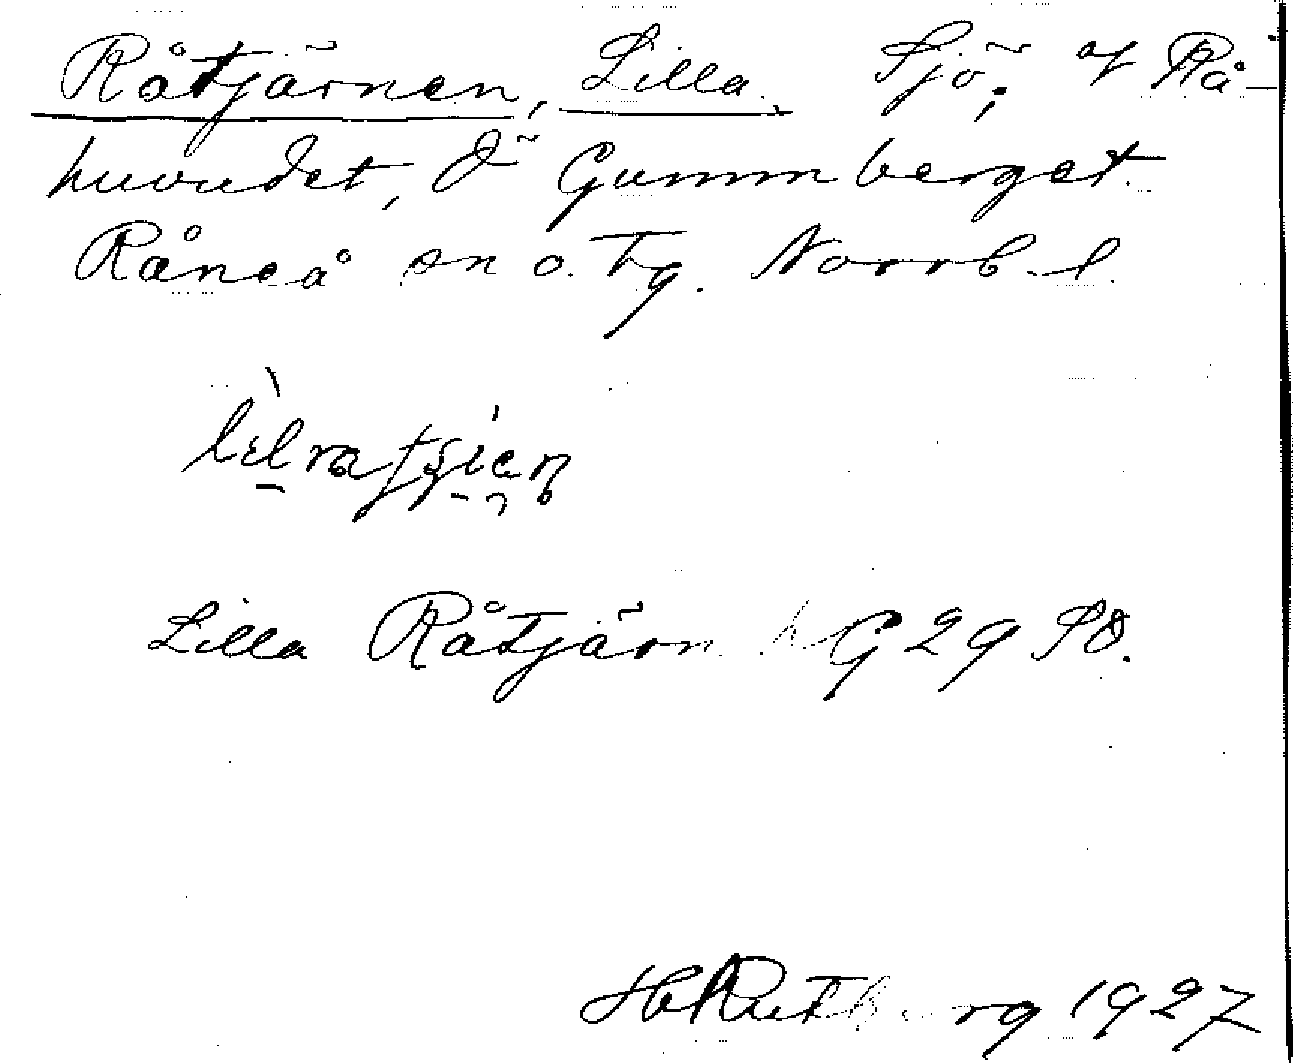 Råtjärnen, Lilla. Sjö; af Rå-
huvudet, ö Gummberget
Råneå sn o. Tg. Norrb. l.
Lilla Råtjärn G 29 SO.
H Rutberg 1927